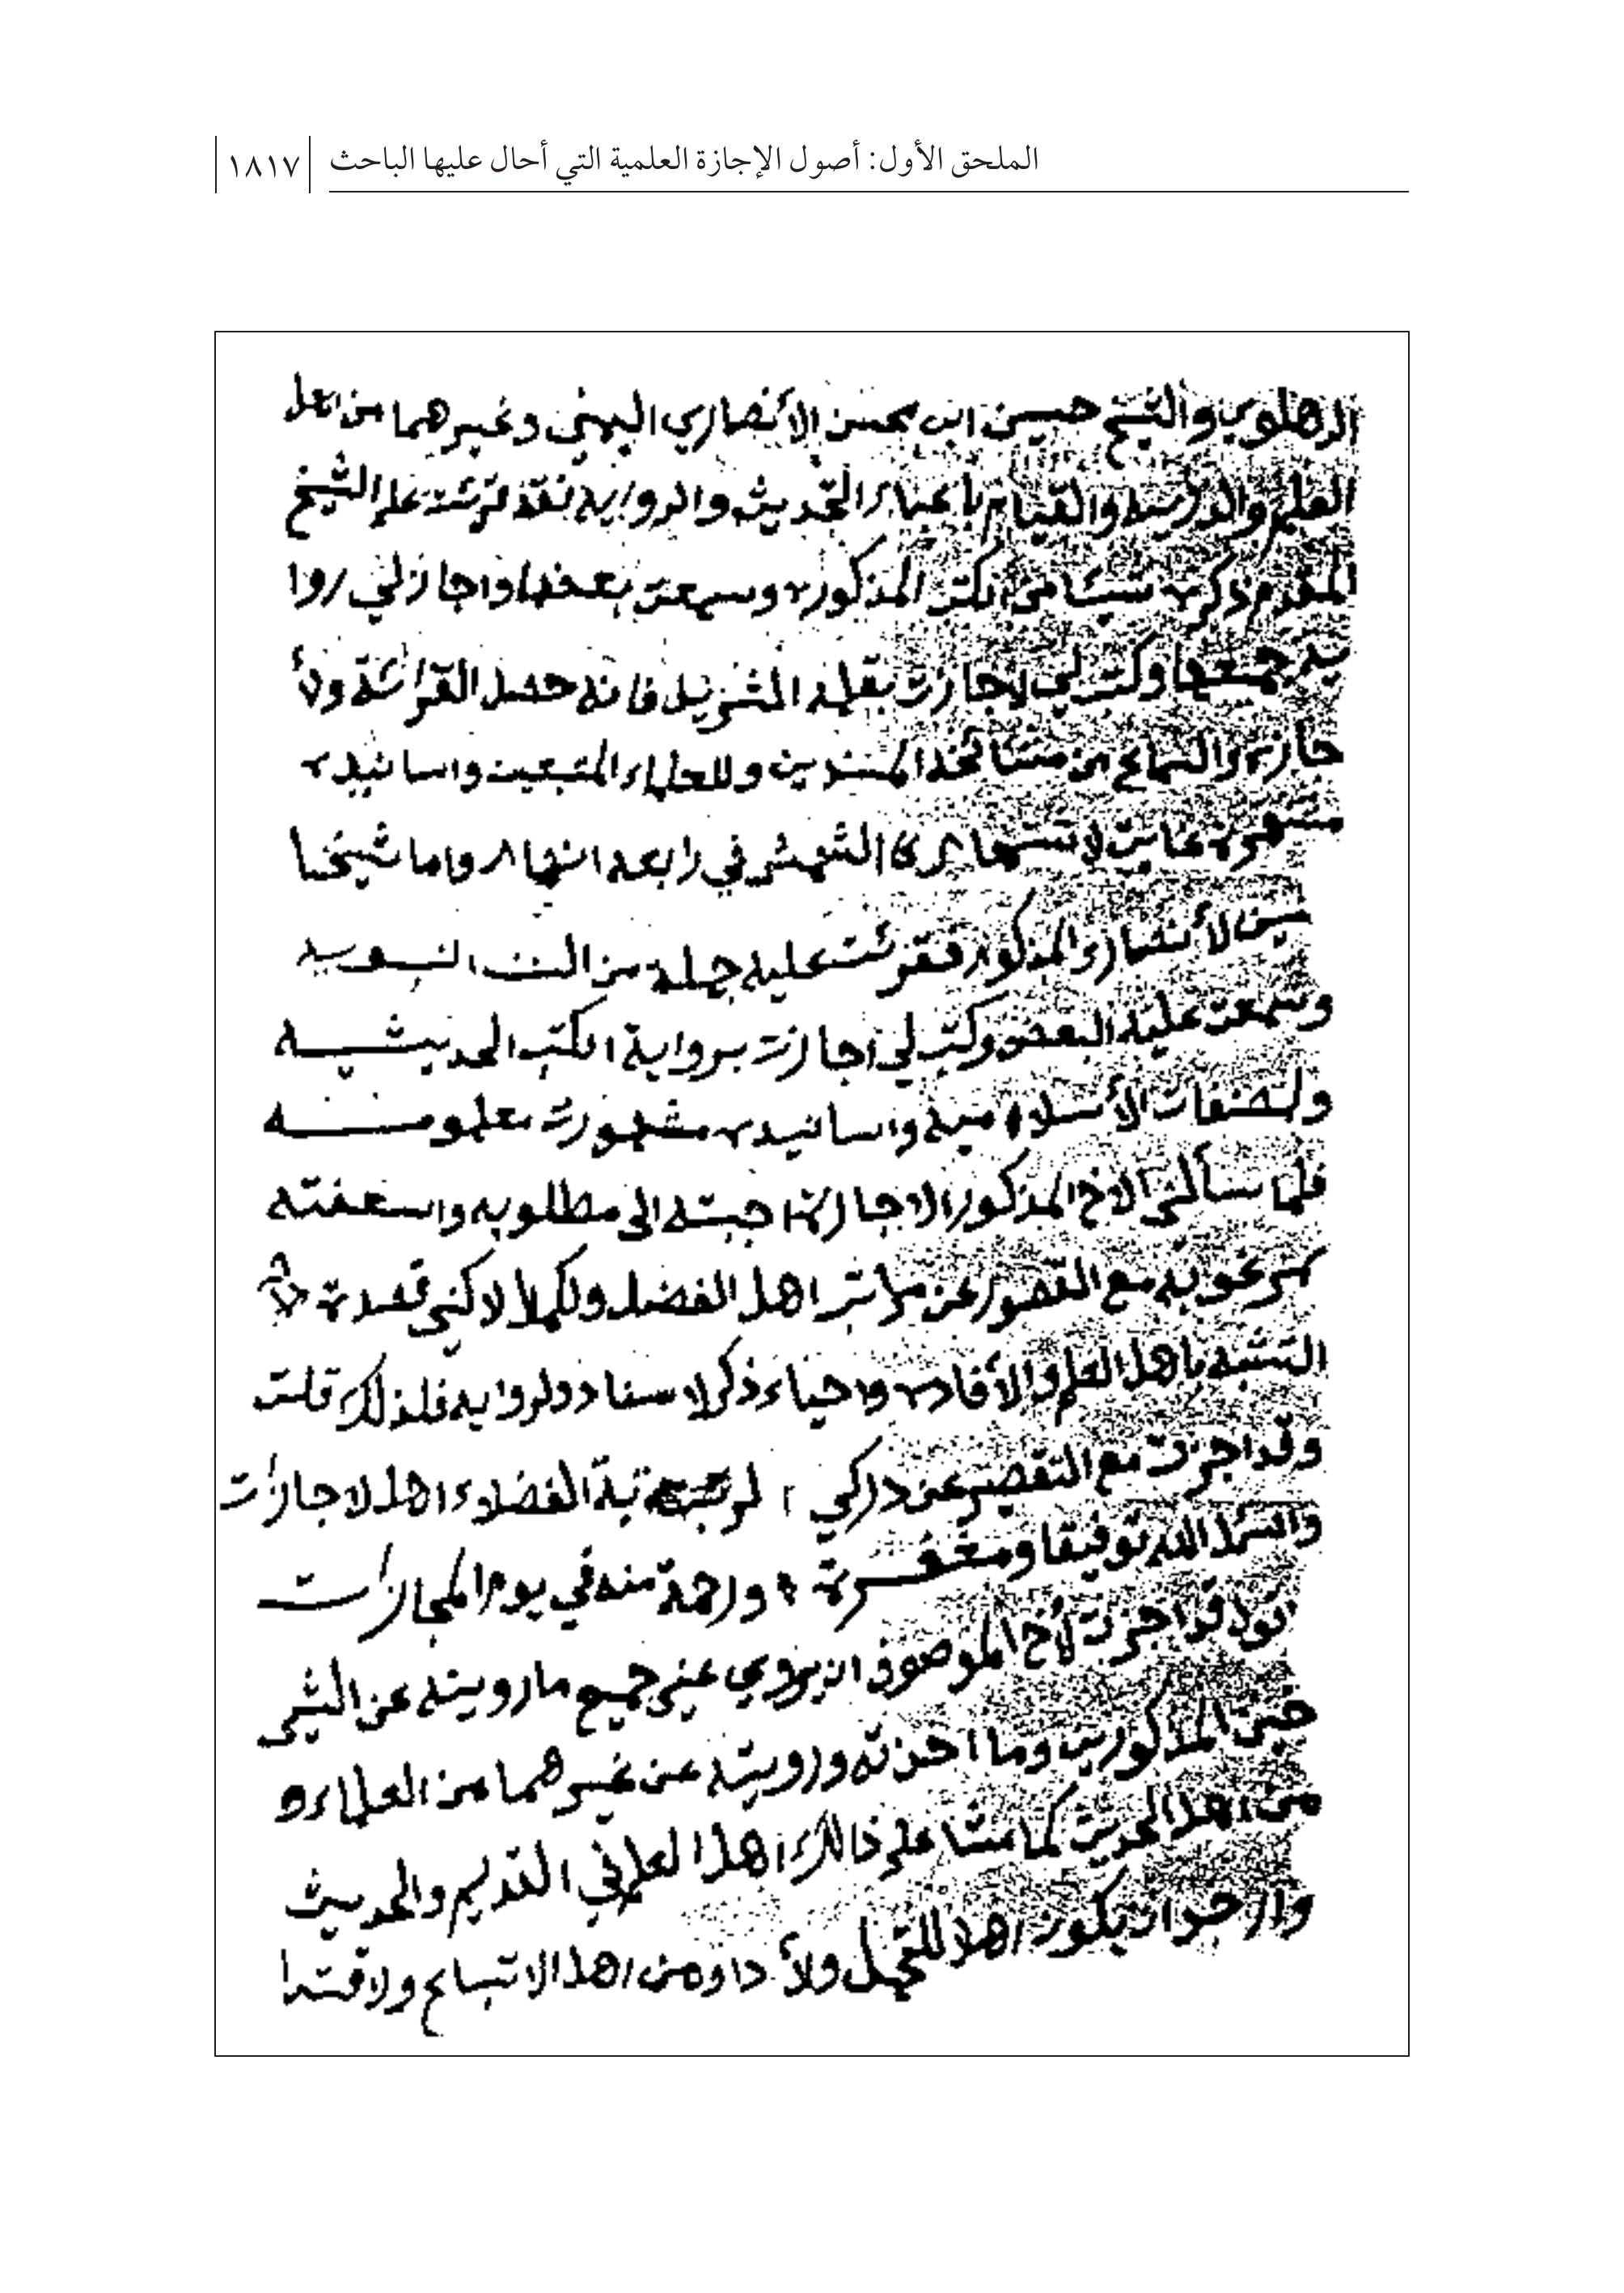 الملحق الأول: أصول الإجازة العلمية التي أحال عليها الباحث
١٨١٧
الدهلوي والشيخ حسين ابن محسن الأنصاري اليمني وغيرهما من اهل
العلم والدراسه والقيام باعباء التحديث والروايه فقد قرئت على الشيخ
المقدم ذكره شيئا من الكتب المذكوره وسمعت بعضها واجازلي روا
يه جميعها وكتب لي اجازت بقلمه الشريف فانه حصل القرائة ولأ
جازه والسماع من مشائخه المسندين وللعلماء المتبعين واسانيده
مشهورة غايت لاشتهار كا الشمس في رابعة النهار واما شيخنا
حسين لأنصاري المذكور فقرئت عليه جملة من السنن النبويه
وسمعت عليه البعض وكتب لي اجازت برواية الكتب الحديثيه
ولمصنفات الأسلاميه واسانيده مشهورت معلومنه
فلما سألني الاخ المذكور الاجازة اجبته الى مطلوبه واسعفته
مرغوبه مع القصور عن مراتب اهل الفضل ولكمال لاكني قصدت
التشبه باهل العلم والأفاده واحياء ذكر لاسناد ولروايه فلذلك قلت
وقد اجزت مع التقصير عن دركي لرتبة الفضلاء اهل لاجازات
واسئل الله توفيقا ومغفرة ورحمة منه في يوم المجازات
اجزت لأخ الموصوف ان يروي عني جميع مارويته عن الشي
خين المذكورين وما اخذته ورويته عن غيرهما من العلماء
من اهل الحديث كما مشا على ذالك اهل العلم في القديم والحديث
وارجوا ان يكون اهلا للتحمل ولأداء ومن اهل الاتباع ولاقتدا